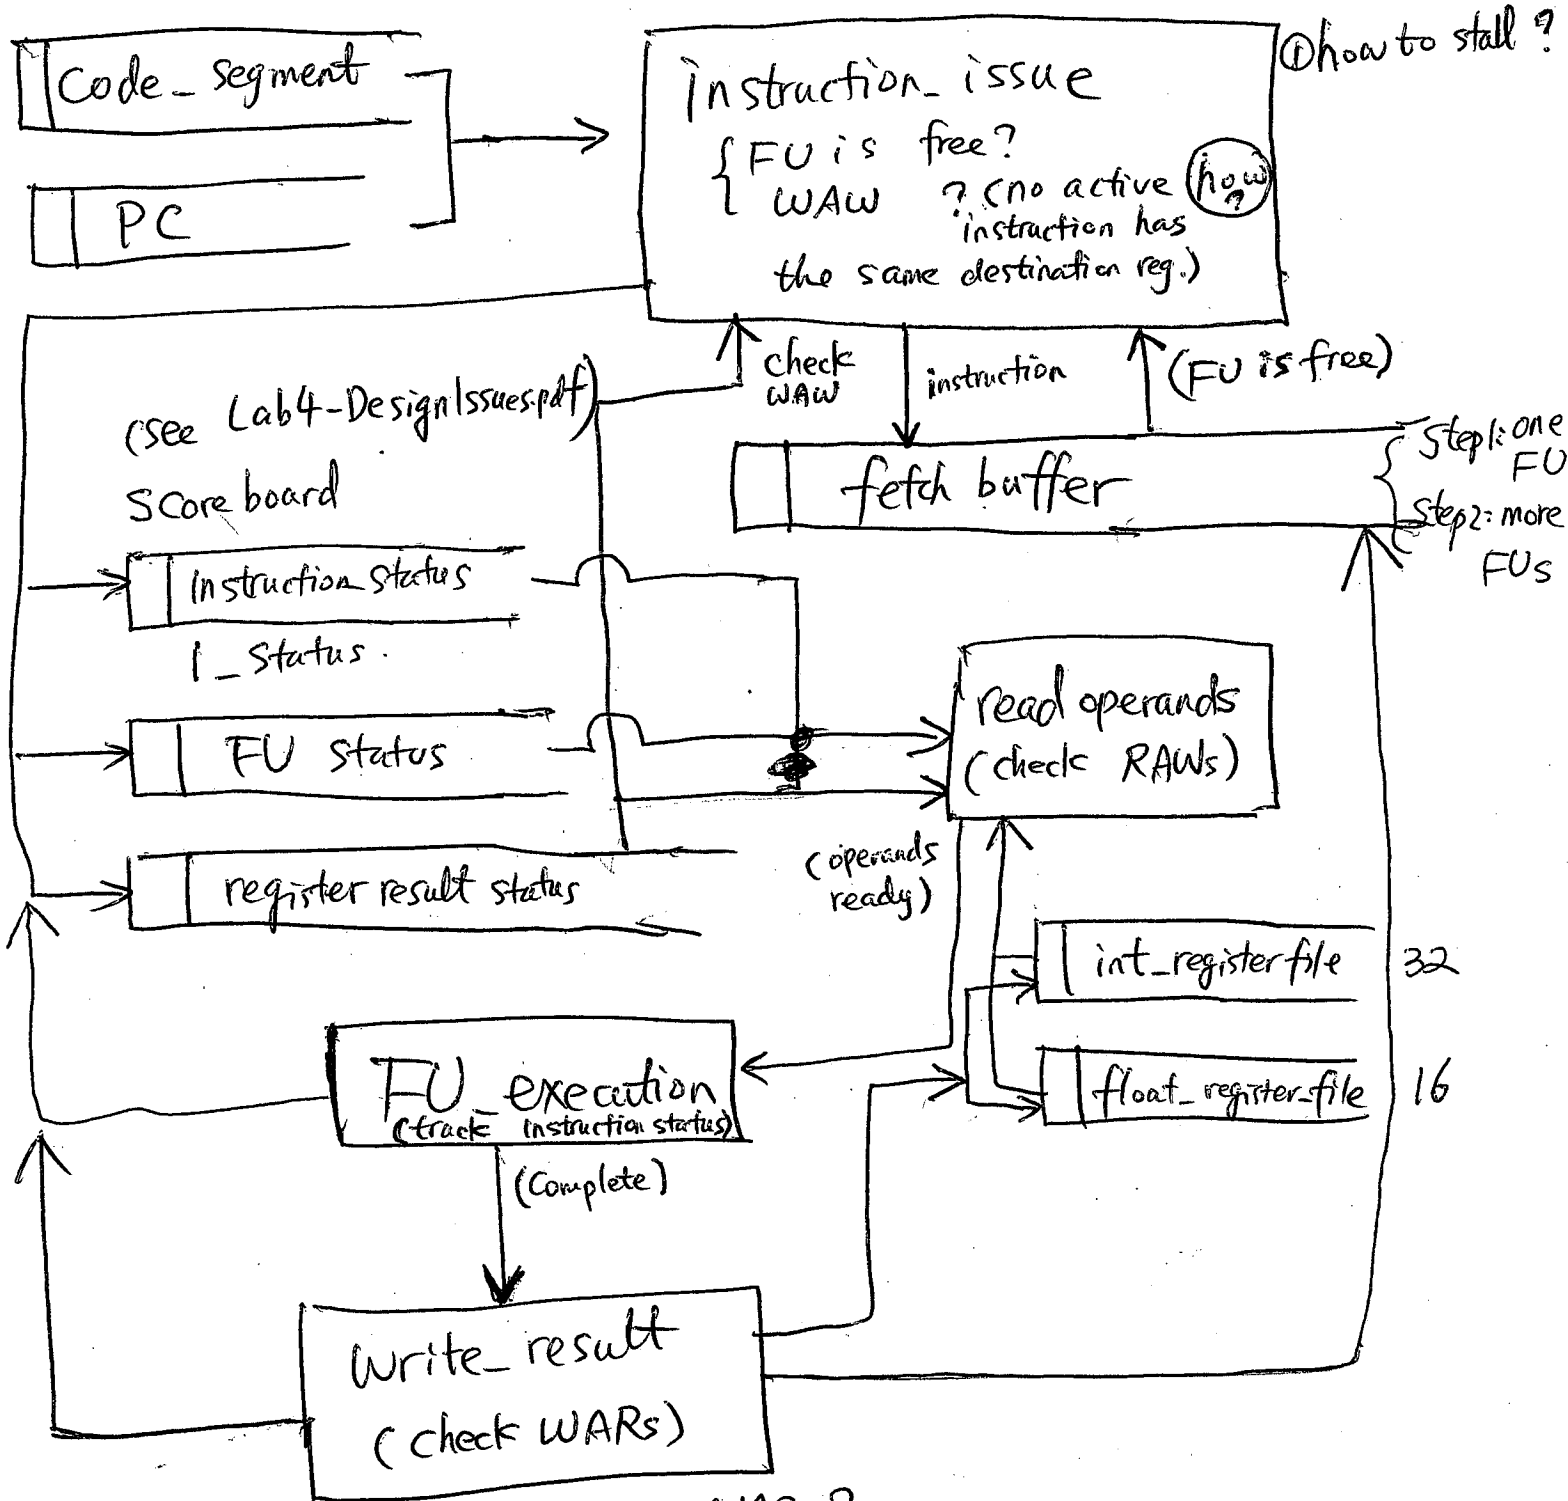 Code_segment
PC
①how to stall ?
instruction_issue
FU is free?
WAW ? (no active how?
instruction has
the same destination reg.)
check
WAW
instruction
(FU is free)
(see Lab4-DesignIssues.pdf)
Scoreboard
fetch buffer
Step1: one
FU
Step2: more
FUs
Instruction_status
I_status.
FU status
register result status
read operands
(check RAWs)
(operands
ready)
int_register file 32
float_register_file 16
FU_execution
(track instruction status)
(Complete)
Write_result
(check WARs)